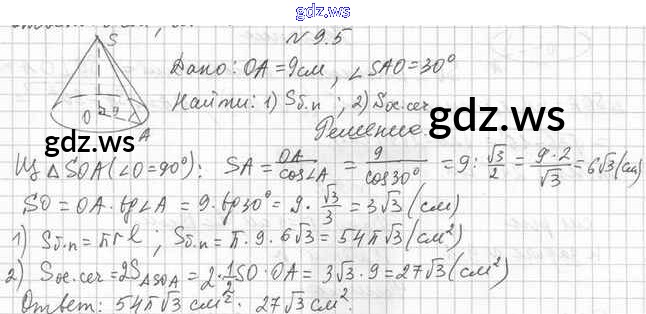 gdz.ws
№ 9.5
S
O
A
Дано: OA = 9 см, ∠SAO = 30°
Найти: 1) Sб.п ; 2) Sос.сеч
Решение
gdz.ws
gdz.ws
Из △SOA (∠O = 90°): SA = OA/cos∠A = 9/cos30° = 9 : √3/2 = 9·2/√3 = 6√3 (см)
SO = OA · tg∠A = 9 · tg30° = 9 · √3/3 = 3√3 (см)
1) Sб.п = πrl ; Sб.п = π · 9 · 6√3 = 54π√3 (см²)
2) Sос.сеч = 2S△SOA = 2 · 1/2 SO · OA = 3√3 · 9 = 27√3 (см²)
Ответ: 54π√3 см². 27√3 см².
gdz.ws